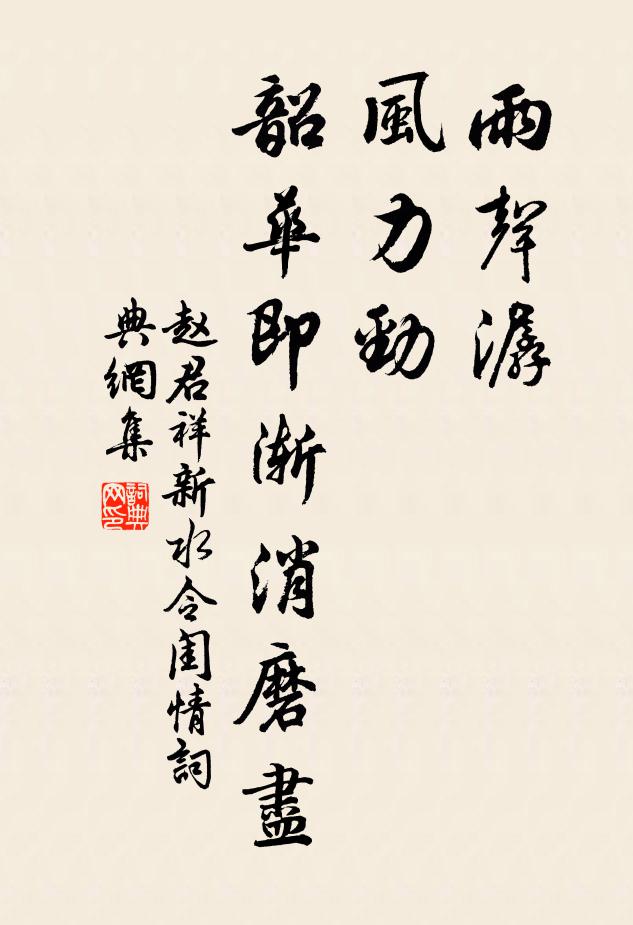 雨聲潺
風力勁
韶華即漸消磨盡
赵君祥新水令閨情詞
典網集
詞典網印